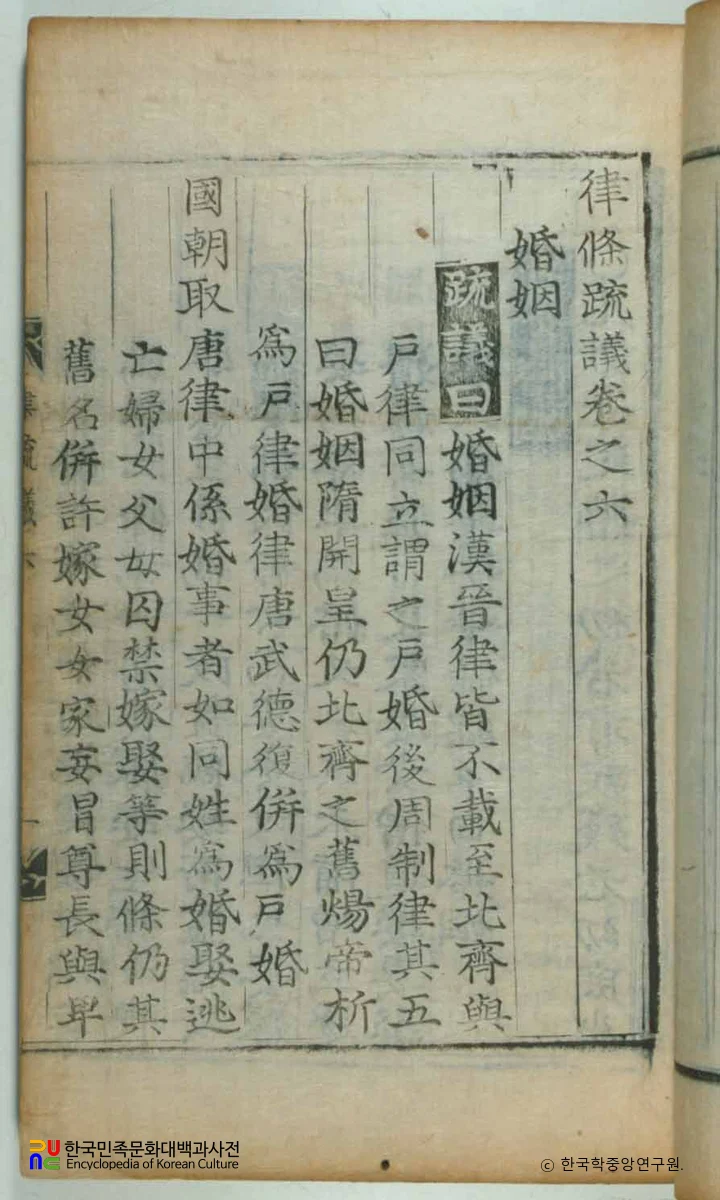 律條疏議卷之六
婚姻
疏議曰婚姻漢晉律皆不載至北齊與
戸律同立謂之戸婚後周制律其五
曰婚姻隋開皇仍北齊之舊煬帝析
爲戸律婚律唐武德復併爲戸婚
國朝取唐律中係婚事者如同姓爲婚娶逃
亡婦女父母囚禁嫁娶等則條仍其
舊名併許嫁女女家妄冒尊長與卑
한국민족문화대백과사전
Encyclopedia of Korean Culture
ⓒ 한국학중앙연구원.